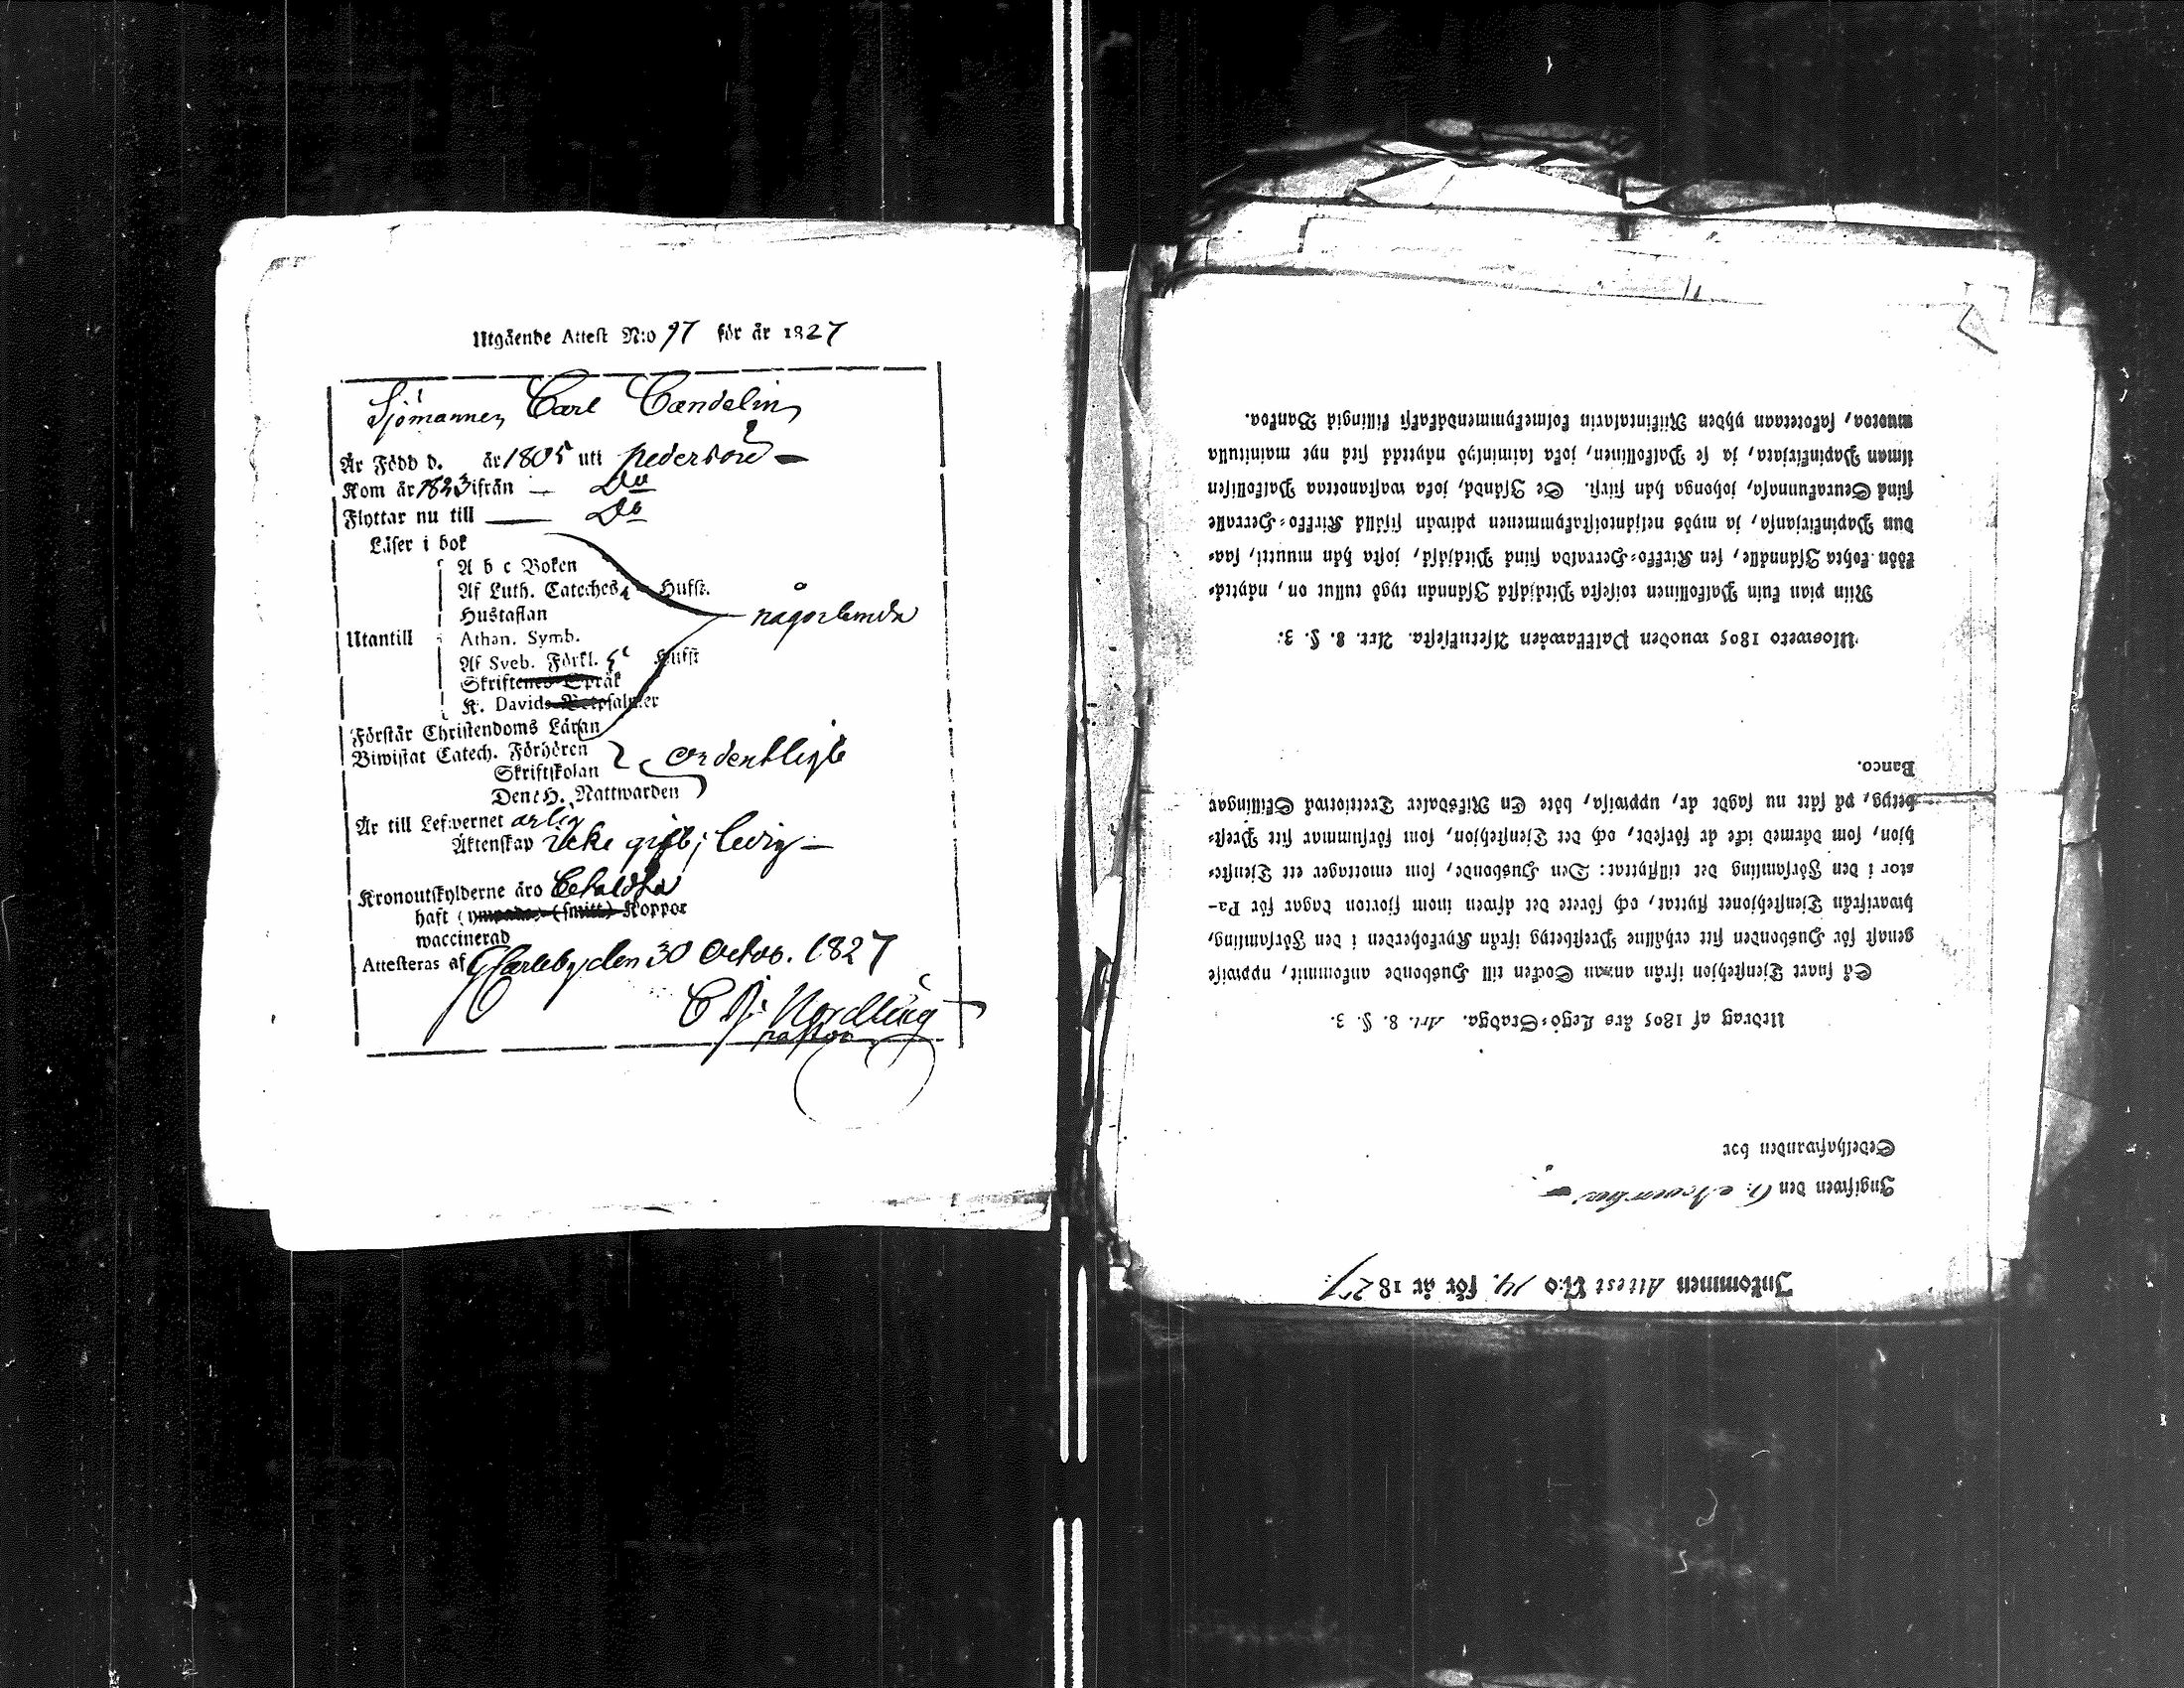 Utgående Attest N:o 97 för år 1827
Sjömannen Carl Candelin
Är Född d. år 1805 uti Pedersöre
Kom år 1823 ifrån — Do
Flyttar nu till — Do
Läser i bok
A b c Boken
Af Luth. Cateches. 4 Hufst.
Hustaflan
någorlunda
Utantill Athan. Symb.
Af Sveb. Förkl. Hufst
Skriftenes Språk
K. Davids Botpsalmer
Förstår Christendoms Läran
Biwistat Catech. Förhören
Skriftskolan
ordentligt
Den H. Nattwarden
Är till Lefwernet ärlig
Äktenskap icke gift; ledig —
Kronoutskylderne äro betaldta
haft (ympade) (smitt) Koppor
waccinerad
Attesteras af GCarleby den 30 Octob. 1827
C Nordling
pastor
Inkommen Attest N:o 14. för år 1827.
Ingifwen den November
Sedelhafwanden bor
Utdrag af 1805 års Lego-Stadga. Art. 8. §. 3.
Så snart Tjenstehjon ifrån annan Socken till Husbonde ankommit, uppwise
genast för Husbonden sitt erhållne Prestbetyg ifrån Kyrkoherden i den Församling,
hwarifrån Tjenstehjonet flyttat, och förete det äfwen inom fjorton dagar för Pa-
stor i den Församling det tillflyttat: Den Husbonde, som emottager ett Tjenste-
hjon, som därmed icke är försedt, och det Tjenstehjon, som försummar sitt Prest-
betyg, på sätt nu sagdt är, uppwisa, böte En Riksdaler Trettiotwå Skillingar
Banco.
Ulosweto 1805 wuoden Palkkawäen Asetuksesta. Art. 8. §. 3:
Niin pian kuin Palkollinen toisesta Pitäjästä Isännän tygö tullut on, näyttä-
kään kohta Isännälle, sen Kirkko-Herralda siinä Pitäjäsä, josta hän muutti, saa-
dun Papinkirjansa, ja myös neljäntoistakymmenen päiwän sisällä Kirkko-Herralle
siinä Seurakunnasa, johonga hän siirsi. Se Isändä, joka wastanottaa Palkollisen
ilman Papinkirjata, ja se Palkollinen, joka laiminlyö näyttää sitä nyt mainitulla
muotoa, sakotetaan yhden Riikintalarin kolmekymmendäkaksi killingiä Bankoa.